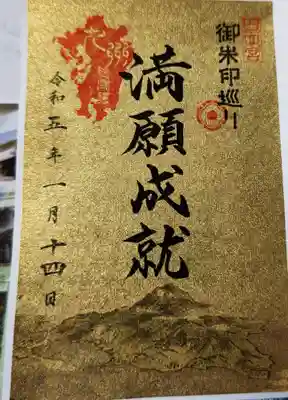 御朱印巡り
満願成就
令和五年一月十四日